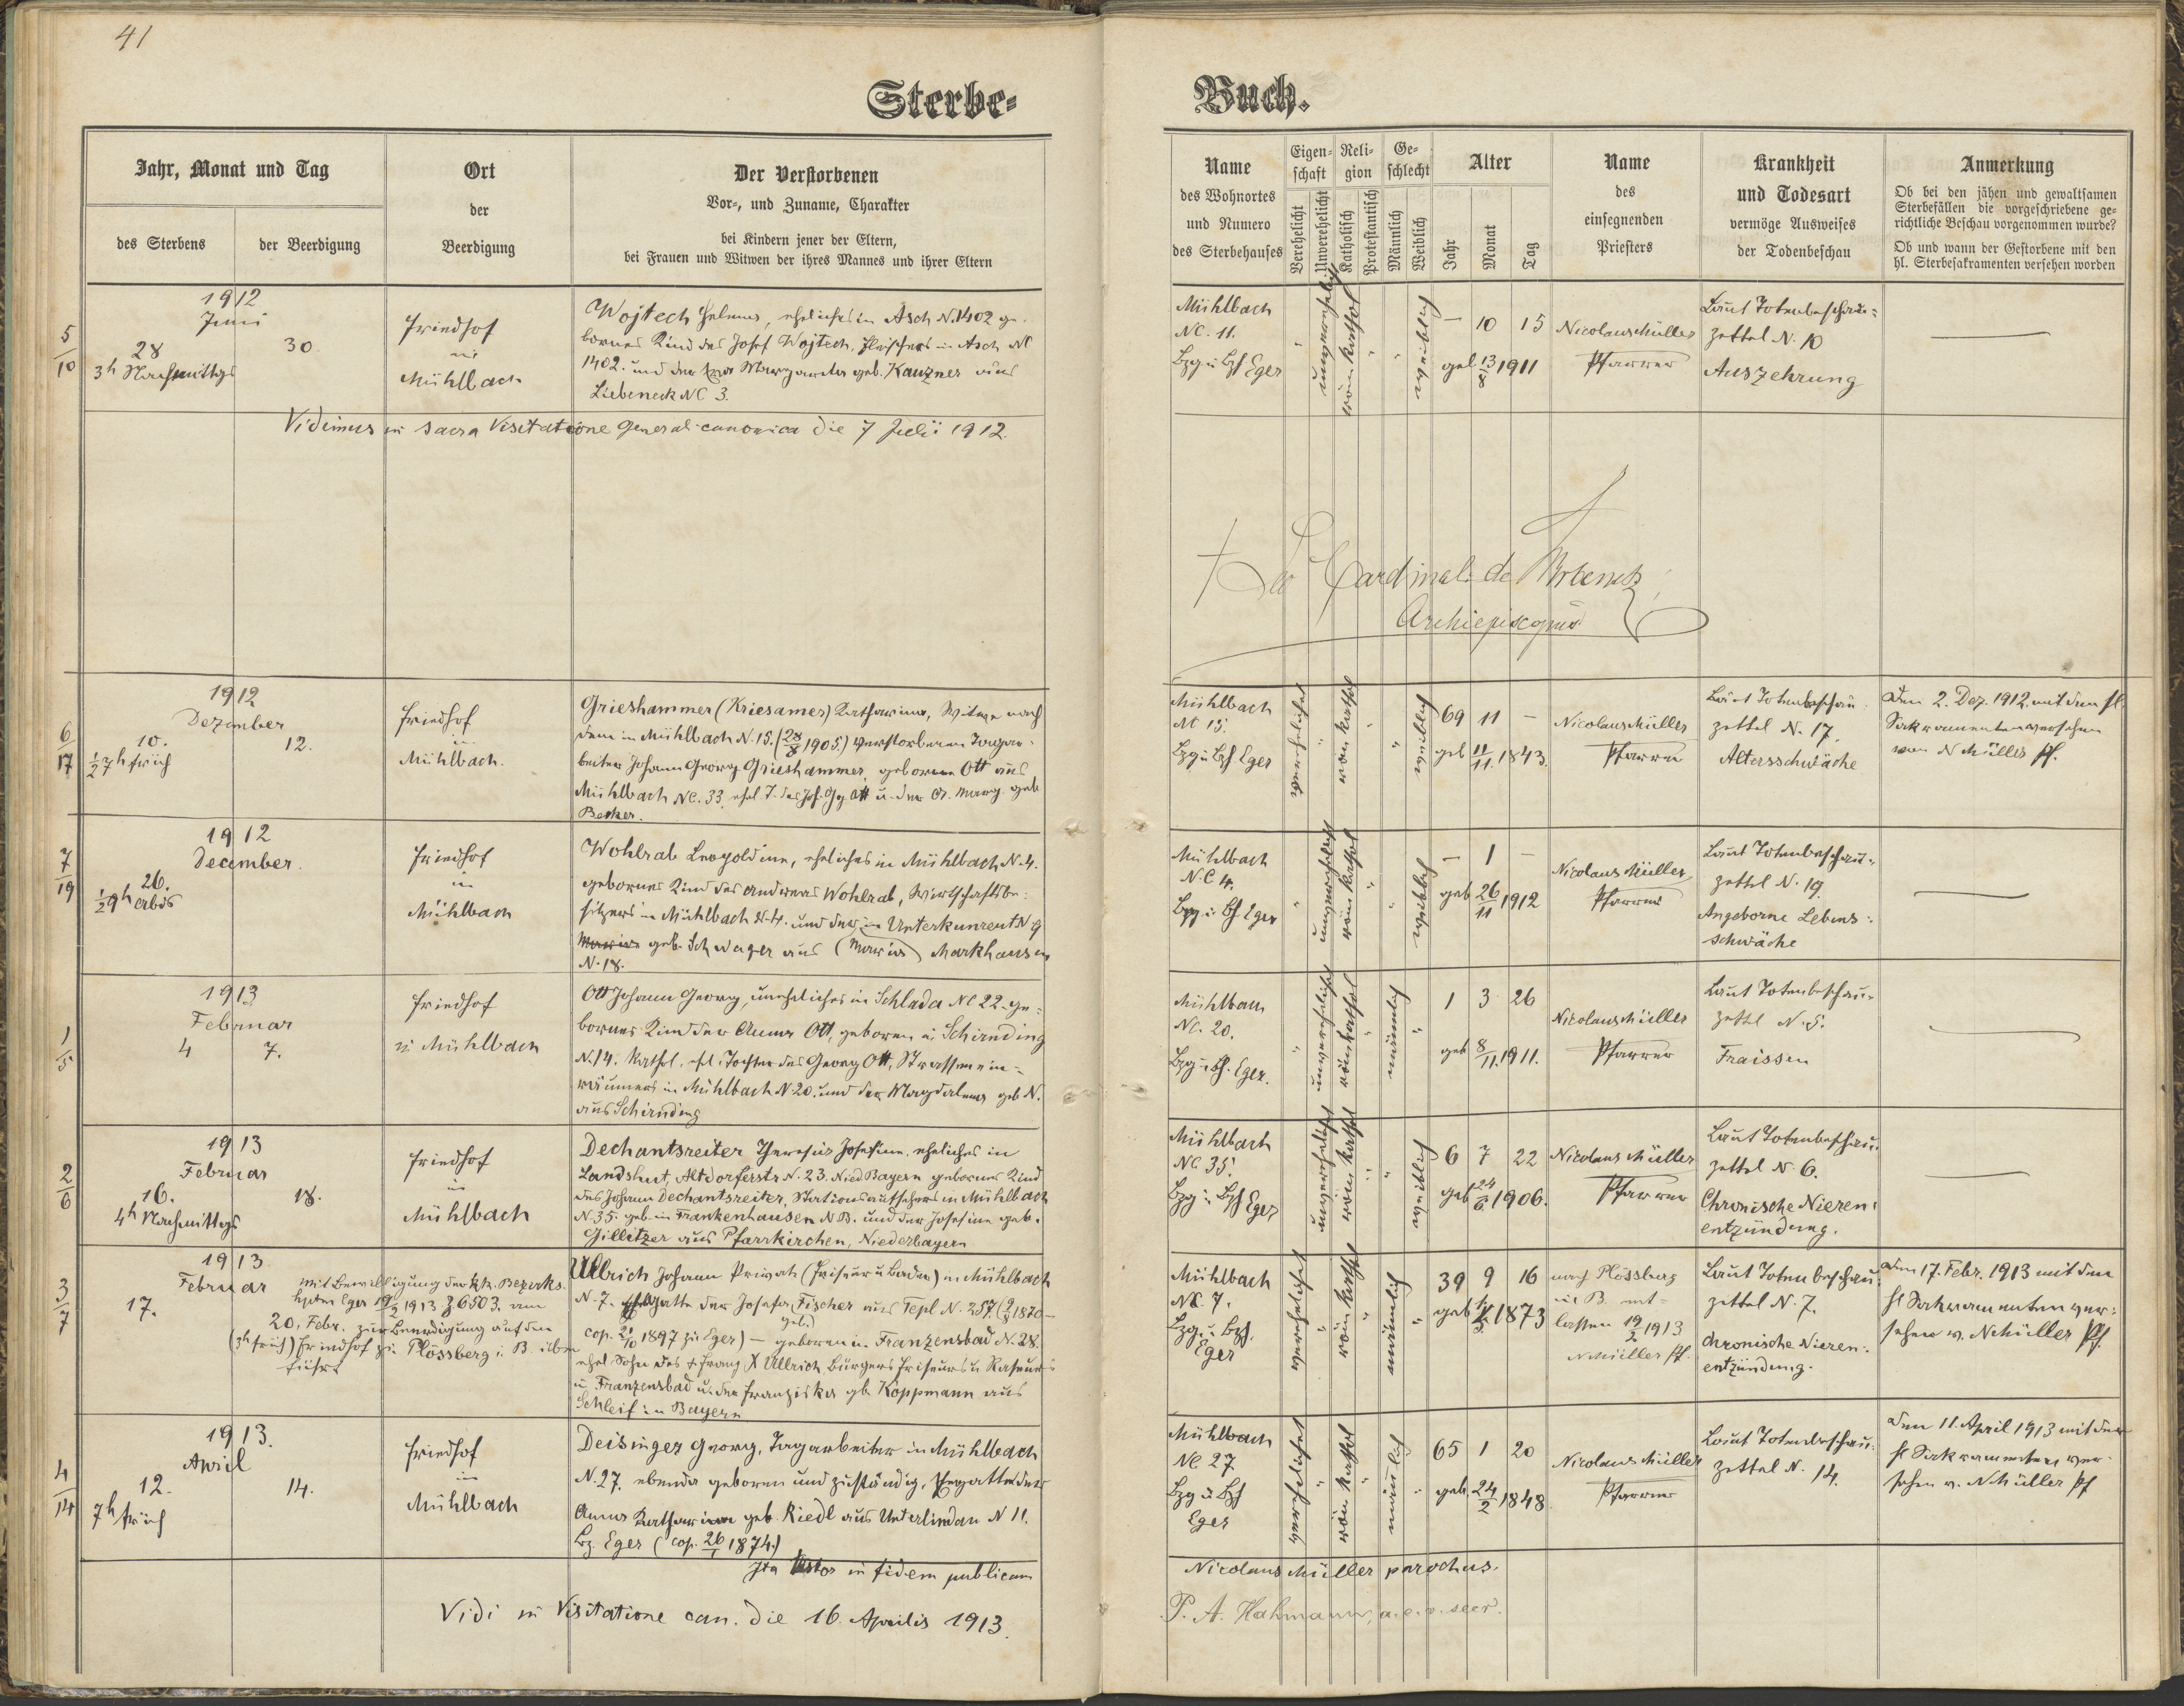 41
Sterbe-
Buch.
Jahr, Monat und Tag
des Sterbens
der Beerdigung
Ort
der
Beerdigung
Der Verstorbenen
Vor-, und Zuname, Charakter
bei Kindern jener der Eltern,
bei Frauen und Witwen der ihres Mannes und ihrer Eltern
Name
des Wohnortes
und Numero
des Sterbehauses
Eigen-
schaft
Verehelicht
Unverehelicht
Reli-
gion
Katholisch
Protestantisch
Ge-
schlecht
Männlich
Weiblich
Alter
Jahr
Monat
Tag
Name
des
einsegnenden
Priesters
Krankheit
und Todesart
vermöge Ausweises
der Todenbeschau
Anmerkung
Ob bei den jähen und gewaltsamen
Sterbefällen die vorgeschriebene ge-
richtliche Beschau vorgenommen wurde?
Ob und wann der Gestorbene mit den
hl. Sterbesakramenten versehen worden
5/10
1912
Juni
28
3h Nachmittgs
30
Friedhof
in
Mühlbach
Wojtech Helena, eheliches in Asch N. 1402 ge-
bornes Kind des Josef Wojtech, Fleischers in Asch NC
1402. und der Margareta geb. Kauzner aus
Liebeneck NC 3.
Mühlbach
NC. 11.
Bzg u Bzh Eger
unverehelicht
röm kathol
weiblich
– 10 15
geb 13/8 1911
Nicolaus Müller
Pfarrer
Laut Totenbeschau-
zettel N. 10
Auszehrung
Vidimus in sacra Visitatione generali canonica die 7 Julii 1912.
+ Leo Cardinal. de Skrbensky
Archiepiscopus
6/17
1912
Dezember
10.
1/2 7h früh
12.
Friedhof
in
Mühlbach.
Grieshammer (Kriesamer) Katharina, Witwe nach
dem in Mühlbach N. 15. (28/8 1905) verstorbenen Tagar-
beiter Johann Georg Grieshammer, geborene Ott aus
Mühlbach NC. 33, ehel T. des Joh. Gg Ott u. der A. Marg. geb
Becker.
Mühlbach
NC 15.
Bzg u Bzh Eger
verehelicht
röm kathol
weiblich
69 11 –
geb 11/11. 1843.
Nicolaus Müller
Pfarrer
Laut Totenbeschau-
zettel N. 17.
Altersschwäche
Den 2. Dez. 1912 mit den hl.
Sakramenten versehen
von N Müller Pf.
7/19
1912
December.
26.
1/2 9h abds
Friedhof
in
Mühlbach
Wohlrab Leopoldine, eheliches in Mühlbach N. 4.
gebornes Kind des Andreas Wohlrab, Wirtschaftsbe-
sitzers in Mühlbach N. 4. und der in Unterkunreut N 9
Maria geb. Schwager aus (Maria) Markhausen
N. 18.
Mühlbach
N.C 4.
Bzg u Bh Eger
unverehelicht
röm kathol
weiblich
– 1 –
geb 26/11 1912
Nicolaus Müller
Pfarrer
Laut Totenbeschau-
zettel N. 19
Angeborne Lebens-
schwäche
1/5
1913
Februar
4
7.
Friedhof
in Mühlbach
Ott Johann Georg, uneheliches in Schlada NC 22. ge-
bornes Kind der Anna Ott, geboren in Schirnding
N. 14. kathol. ehel. Tochter des Georg Ott, Strassenein-
räumers in Mühlbach N. 20. und der Magdalena geb N.
aus Schirnding
Mühlbach
NC. 20.
Bzg u Bh. Eger.
unverehelicht
röm kathol
männlich
1 3 26
geb 8/11. 1911.
Nicolaus Müller
Pfarrer
Laut Totenbeschau-
zettl N. 5.
Fraissen
2/6
1913
Februar
16.
4h Nachmittgs
18.
Friedhof
in
Mühlbach
Dechantsreiter Theresia Josefine, eheliches in
Landshut, Altdorferstr N. 23. Nied Bayern gebornes Kind
des Johann Dechantsreiter, Stationsaufsehers in Mühlbach
N. 35. geb. in Frankenhausen N B. und der Josefine geb.
Gillitzer aus Pfarrkirchen, Niederbayern
Mühlbach
NC 35.
Bzg u Bzh Eger
unverehelicht
röm kathol
weiblich
6 7 22
geb 24/6. 1906.
Nicolaus Müller
Pfarrer
Laut Totenbeschau-
zettel N 6.
Chronische Nieren-
entzündung.
3/7
1913
Februar
17.
mit Bewilligung der kk. Bezirks
hptm Eger 19/2 1913 Z 6503. am
20. Febr. zur Beerdigung auf den
(3h früh) Friedhof zu Plössberg i. B. über
führt
Ullrich Johann Privat (Friseur u Bader) in Mühlbach
N. 7. Gatte der Josefa Fischer aus Tepl N. 257. 1870 –
cop. 21/10 1897 zu Eger) – geboren in Franzensbad N. 28.
ehel Sohn des + Franz X Ullrich Bürgers Friseurs u Raseurs
in Franzensbad u. der Franziska gb. Koppmann aus
Schleif in Bayern
Mühlbach
NC. 7.
Bzg u. Bzh.
Eger
verehelichet
röm kathol
männlich
39 9 16
1873
nach Plössberg
in B. ent-
lassen 19/2 1913
N Müller Pf.
Laut Totenbeschau-
zettel N. 7.
Chronische Nieren-
entzündung.
Am 17. Febr. 1913 mit den
hl Sakramenten ver-
sehen v. N Müller Pf.
4/14
1913.
April
12.
7h früh
14.
Friedhof
in
Mühlbach
Deisinger Georg, Tagarbeiter in Mühlbach
N. 27. ebenda geboren und zuständig, Ehegatte der
Anna Katharina geb. Riedl aus Unterlindau N 11.
Bz. Eger (cop. 26/1 1874.)
Mühlbach
NC. 27
Bzg u Bzh
Eger
verehelichet
röm kathol
männlich
65 1 20
geb 24/2 1848.
Nicolaus Müller
Pfarrer
Laut Totenbeschau-
zettel N. 14.
Den 11. April 1913 mit den
hl Sakramenten ver-
sehen v. N Müller Pf
Ita testor in fidem publicam
Nicolaus Müller parochus.
Vidi in Visitatione can. die 16. Aprilis 1913.
P. A. Hahmann, a.e.v. secr.